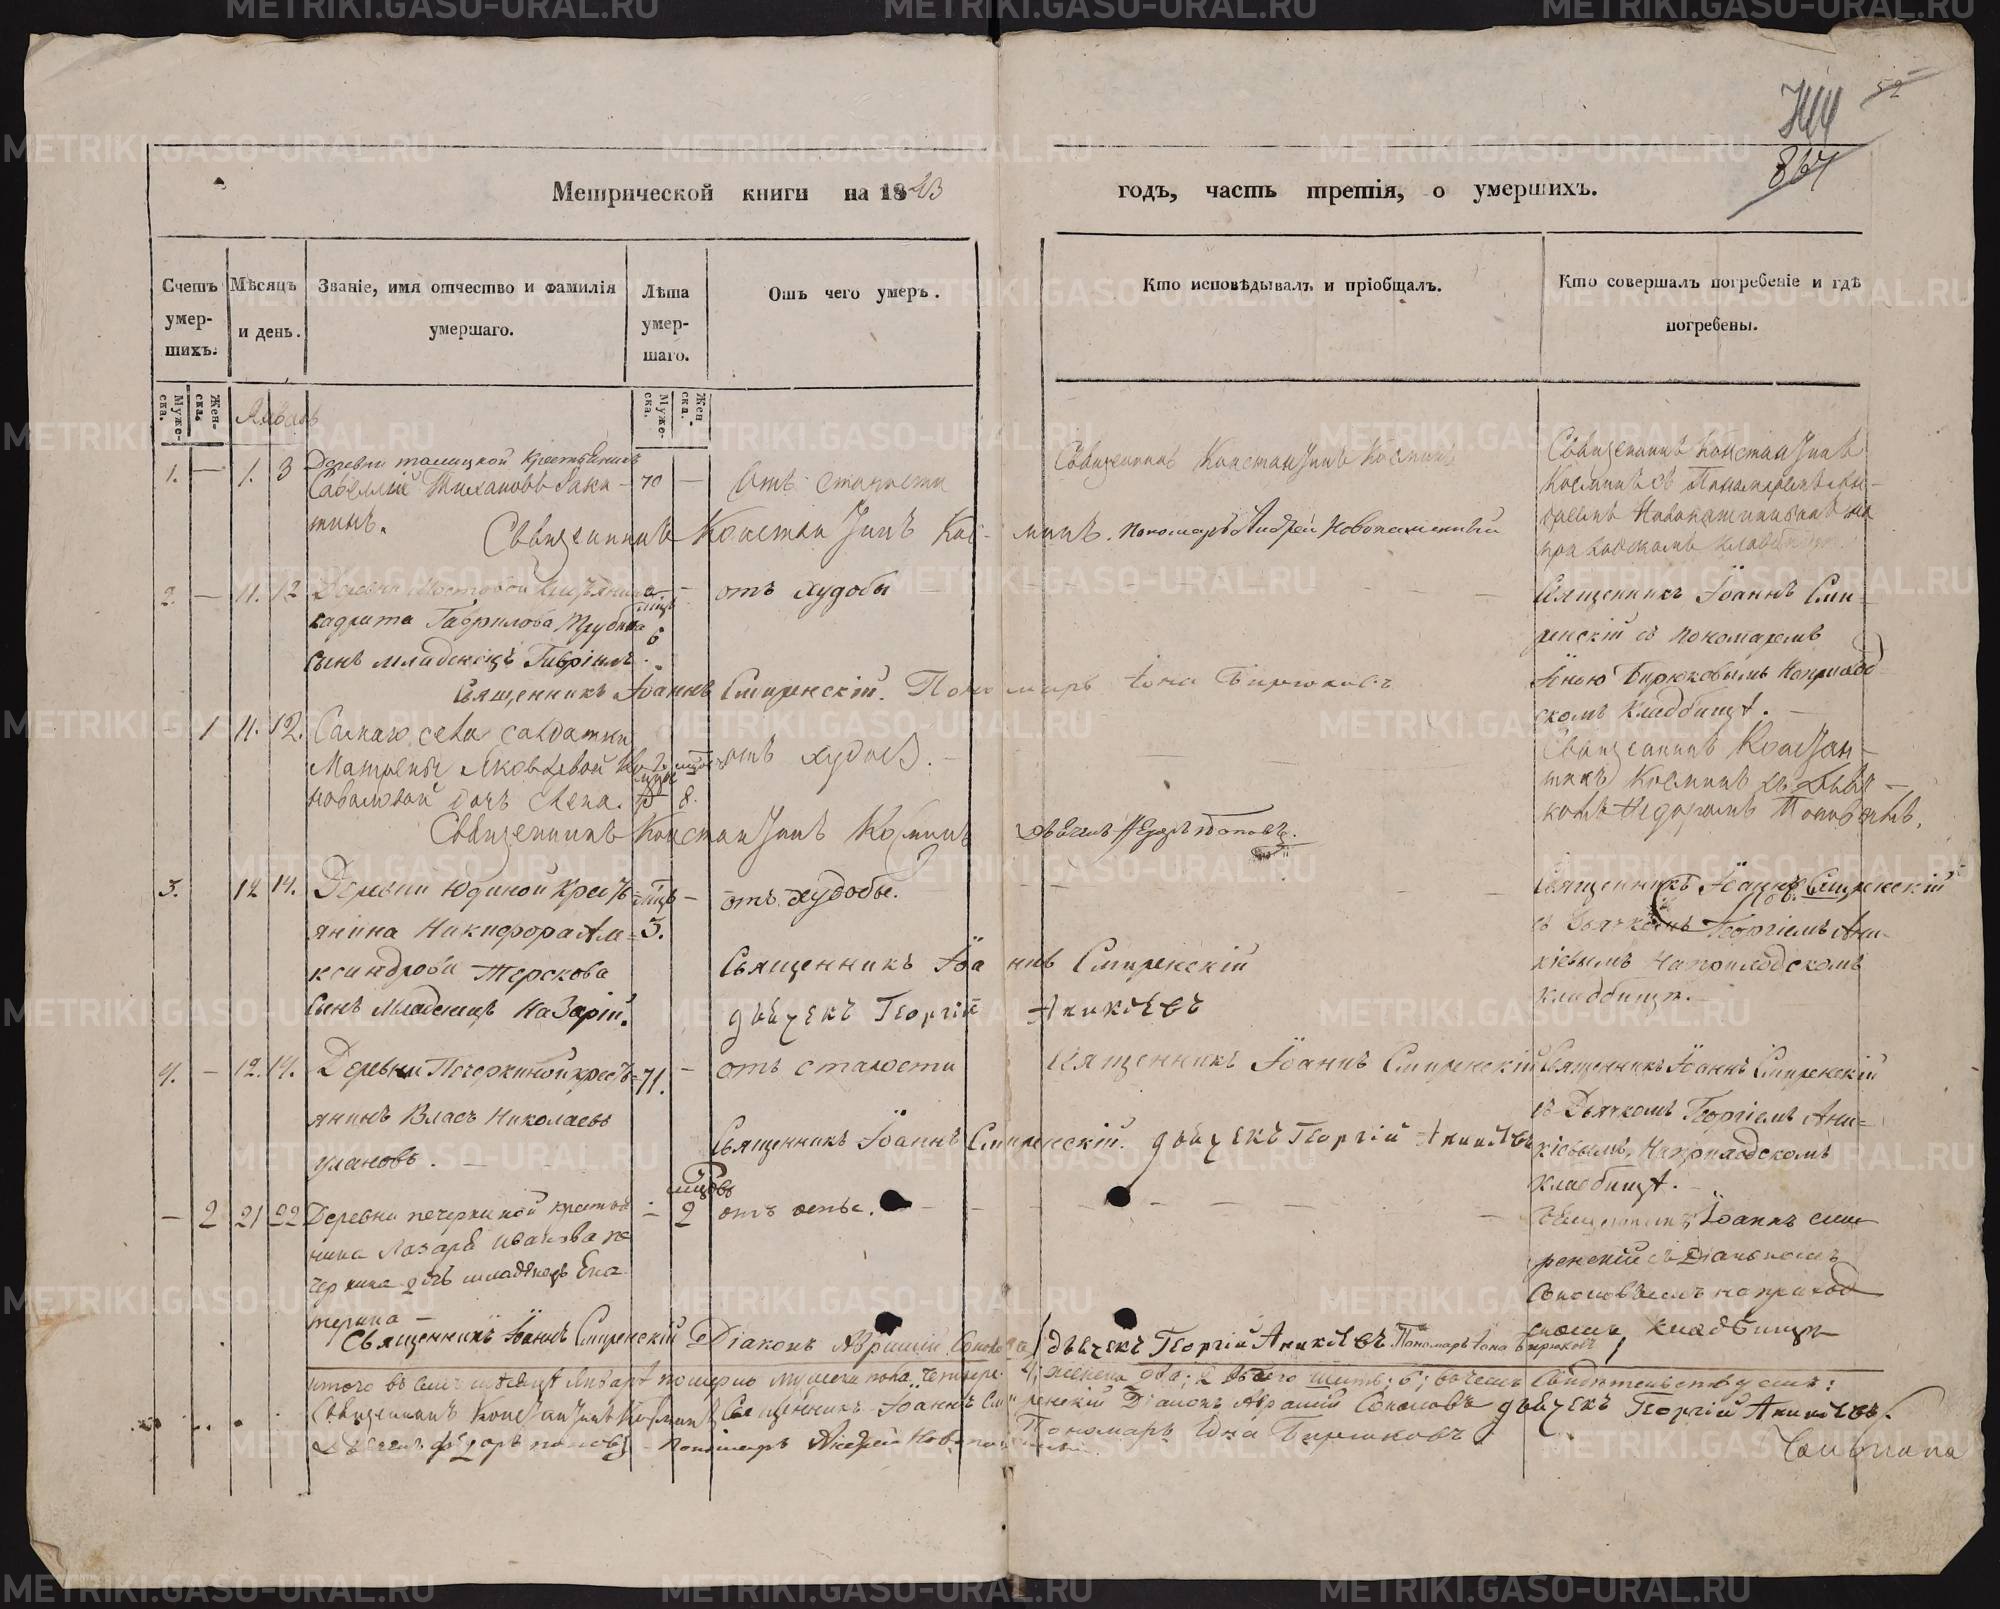 52
744
864
Метрической книги на 1843
годъ, часть третія, о умершихъ.
Счетъ умер-шихъ.
Мѣсяцъ и день.
Званіе, имя отчество и фамилія умершаго.
Лѣта умер-шаго.
Отъ чего умеръ.
Кто исповѣдывалъ и пріобщалъ.
Кто совершалъ погребеніе и гдѣ погребены.
Муже-ска.
Жен-ска.
Муже-ска.
Жен-ска.
Январь
1. — 1. 3
Деревни талицкой крестьянинъ
Савелий Тихановъ Раки-
тинъ.
70 —
Отъ старости
Священникъ Константинъ Косминъ
Священникъ Константинъ
Косминъ съ Пономаремъ Ан-
дреемъ Новопашинымъ на
приходскомъ кладбищѣ.
Священникъ Константинъ Косминъ. Пономарь Андрей Новопашенный
2. — 11. 12
Гаврилова Трубина
сынъ младенецъ Гаврiилъ.
6
отъ худобы
Священникъ Іоаннъ Сми-
ренскій съ пономаремъ
Іоною Бирюковымъ на приход-
скомъ кладбищѣ. —
Священникъ Іоаннъ Смиренскій. Пономарь Іона Бирюковъ
- 1 11. 12.
Самаго села солдатки
Матрены Яковлевой
дочь Елена.
8.
отъ худобы. —
Священникъ Констан-
тинъ Косминъ съ Дьяч-
комъ Федоромъ Поповымъ.
Священникъ Константинъ Косминъ
Дьячекъ Федоръ Поповъ.
3. 12 14.
Деревни Юдиной кресть-
янина Никифора Але-
ксандрова Терскова
сынъ младенецъ Назарій.
3.
отъ худобы.
Священникъ Іоаннъ Смиренскій
съ Дьячкомъ Георгіемъ Ани-
кіевымъ на приходскомъ
кладбищѣ.
Священникъ Іоаннъ Смиренскій
дьячекъ Георгій Аникіевъ
4. — 12. 14.
Деревни Печеркиной кресть-
янинъ Власъ Николаевъ
улановъ. —
71. —
отъ старости
Священникъ Іоаннъ Смиренскій
Священникъ Іоаннъ Смиренскій
съ Дьячкомъ Георгіемъ Ани-
кіевымъ, на приходскомъ
кладбищѣ. —
Священникъ Іоаннъ Смиренскій. дьячекъ Георгій Аникіевъ
— 2 21 22
Деревни печеркиной крестья
нина Лазаря Иванова пе
черкина дочь младенецъ Ека
терина —
мцовъ
2
отъ оспы.
Священникъ Іоаннъ сми
ренскій съ Діакономъ
Соколовымъ на приход
скомъ кладбищѣ
Священникъ Іоаннъ Смиренскій Діаконъ Аврамій Соколовъ дьячекъ Георгій Аникіевъ Пономарь Іона Бирюковъ
итого въ семъ мѣсяцѣ Январѣ померло мужеска пола, четыре 4; женска два; 2 всего шесть; 6; въ чемъ свидѣтельствуемъ:
Священникъ Константинъ Косминъ Священникъ Іоаннъ Смиренскій Діаконъ Аврамій Соколовъ дьячекъ Георгій Аникіевъ.
Дьячекъ Федоръ Поповъ Пономарь Андрей Новопашенный Пономарь Іона Бирюковъ